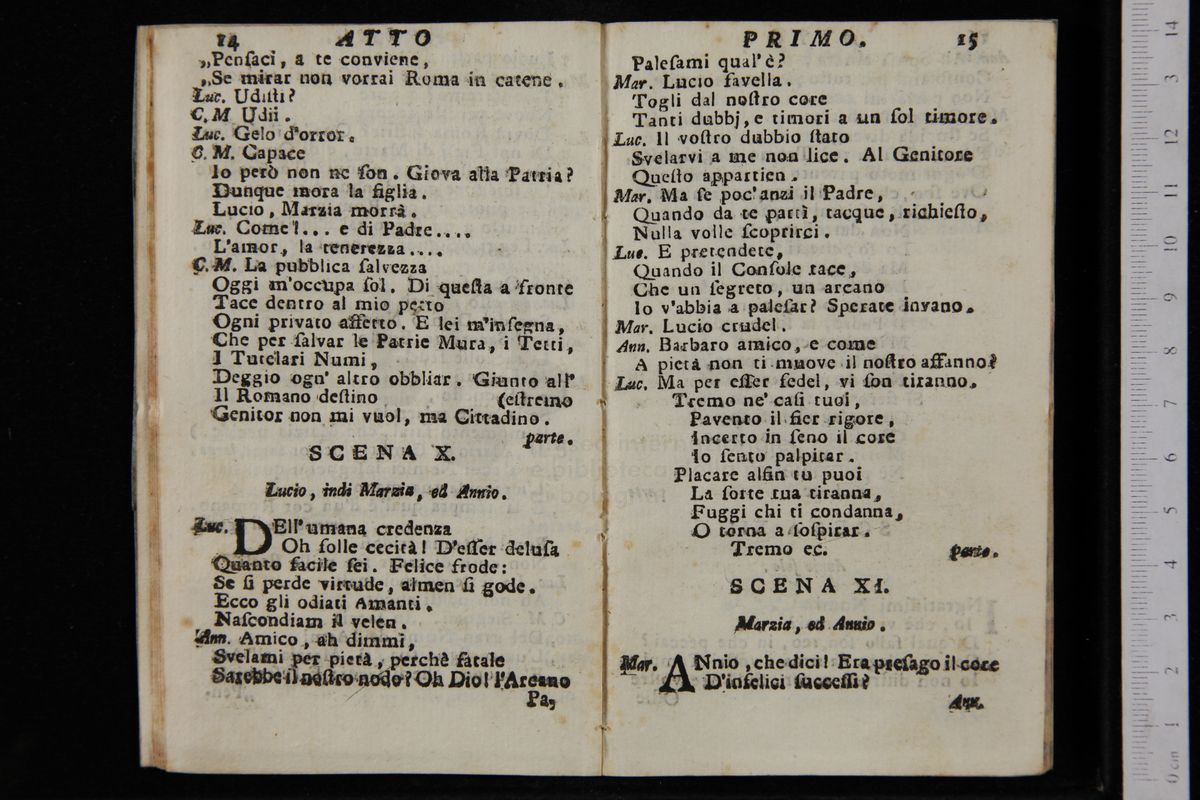 14 ATTO
„Penſaci, a te conviene,
„Se mirar non vorrai Roma in catene.
Luc. Udiſti?
C. M Udii.
Luc. Gelo d'orror.
C. M. Capace
Io però non ne ſon. Giova alla Patria?
Dunque mora la figlia.
Lucio, Marzia morrà.
Luc. Come!... e di Padre....
L'amor, la tenerezza....
C. M. La pubblica ſalvezza
Oggi m'occupa ſol. Di queſta a fronte
Tace dentro al mio petto
Ogni privato affetto. E lei m'inſegna,
Che per ſalvar le Patrie Mura, i Tetti,
I Tutelari Numi,
Deggio ogn' altro obbliar. Giunto all'
Il Romano deſtino (eſtremo
Genitor non mi vuol, ma Cittadino.
parte.
SCENA X.
Lucio, indi Marzia, ed Annio.
Luc. DEll'umana credenza
Oh folle cecità! D'eſſer deluſa
Quanto facile ſei. Felice frode:
Se ſi perde virtude, almen ſi gode.
Ecco gli odiati Amanti.
Naſcondiam il velen.
Ann. Amico, ah dimmi,
Svelami per pietà, perchè fatale
Sarebbe il noſtro nodo? Oh Dio! l'Arcano
Pa,
PRIMO. 15
Paleſami qual'è?
Mar. Lucio favella.
Togli dal noſtro core
Tanti dubbj, e timori a un ſol timore.
Luc. Il voſtro dubbio ſtato
Svelarvi a me non lice. Al Genitore
Queſto appartien.
Mar. Ma ſe poc'anzi il Padre,
Quando da te partì, tacque, richieſto,
Nulla volle ſcoprirci.
Luc. E pretendete,
Quando il Conſole tace,
Che un ſegreto, un arcano
Io v'abbia a paleſar? Sperate invano.
Mar. Lucio crudel.
Ann. Barbaro amico, e come
A pietà non ti muove il noſtro affanno?
Luc. Ma per eſſer fedel, vi ſon tiranno.
Tremo ne' caſi tuoi,
Pavento il fier rigore,
Incerto in ſeno il core
Io ſento palpitar.
Placare alfin tu puoi
La ſorte tua tiranna,
Fuggi chi ti condanna,
O torna a ſoſpirar.
Tremo ec. parte.
SCENA XI.
Marzia, ed Annio.
Mar. ANnio, che dici! Era preſago il core
D'infelici ſucceſſi?
Ann.